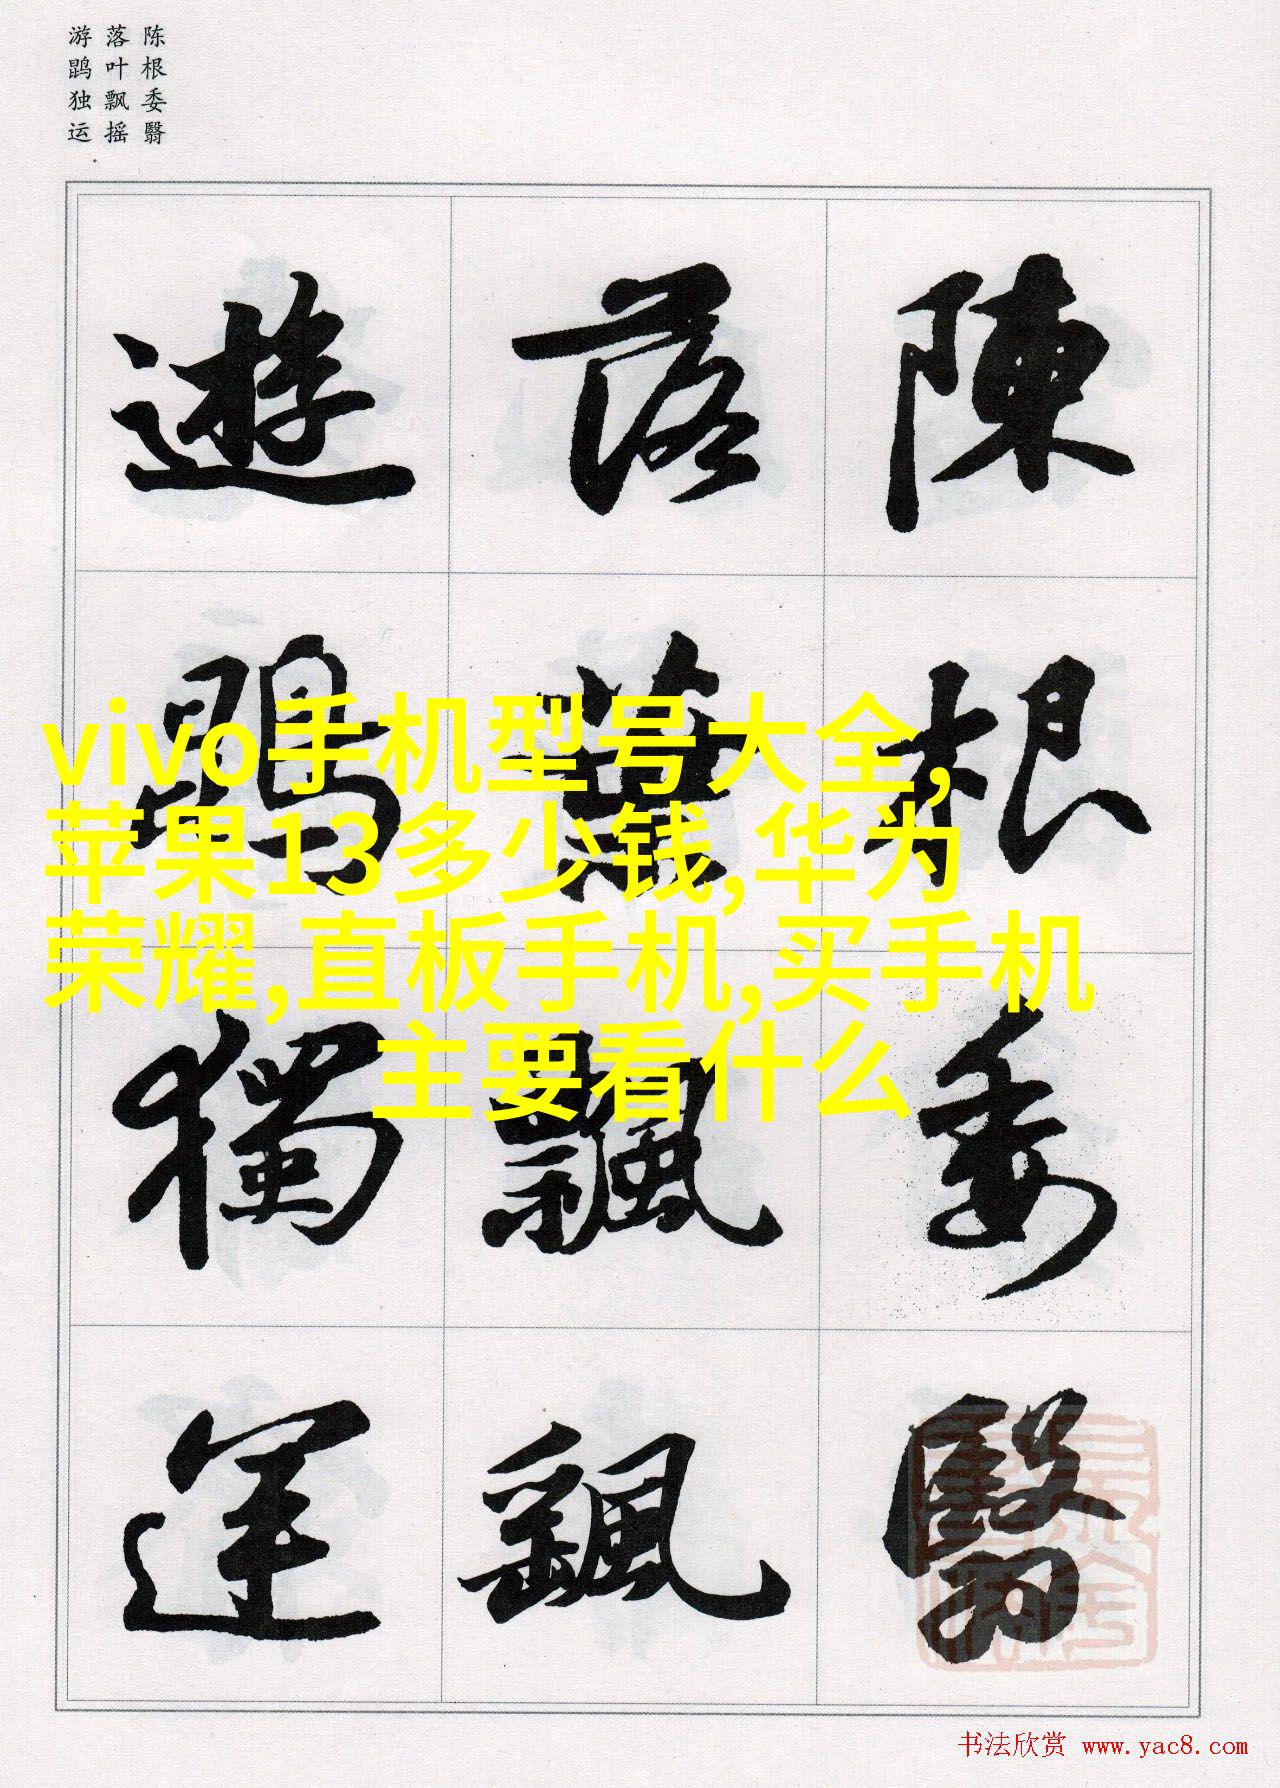 陈根委翳
落叶飘摇
游鹍独运
陳根委翳
落葉飄颻
遊鵾獨運
vivo手机型号大全,
苹果13多少钱,华为
荣耀,直板手机,买手机
主要看什么
书法欣赏 www.yac8.com